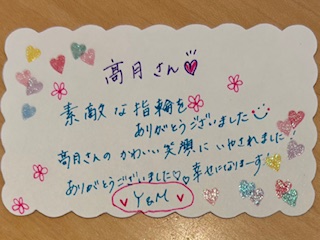 高月さん♡
素敵な指輪を
ありがとうございました
高月さんのかわいい笑顔にいやされました!
ありがとうございました♡♡幸せになりまーす
Y&M